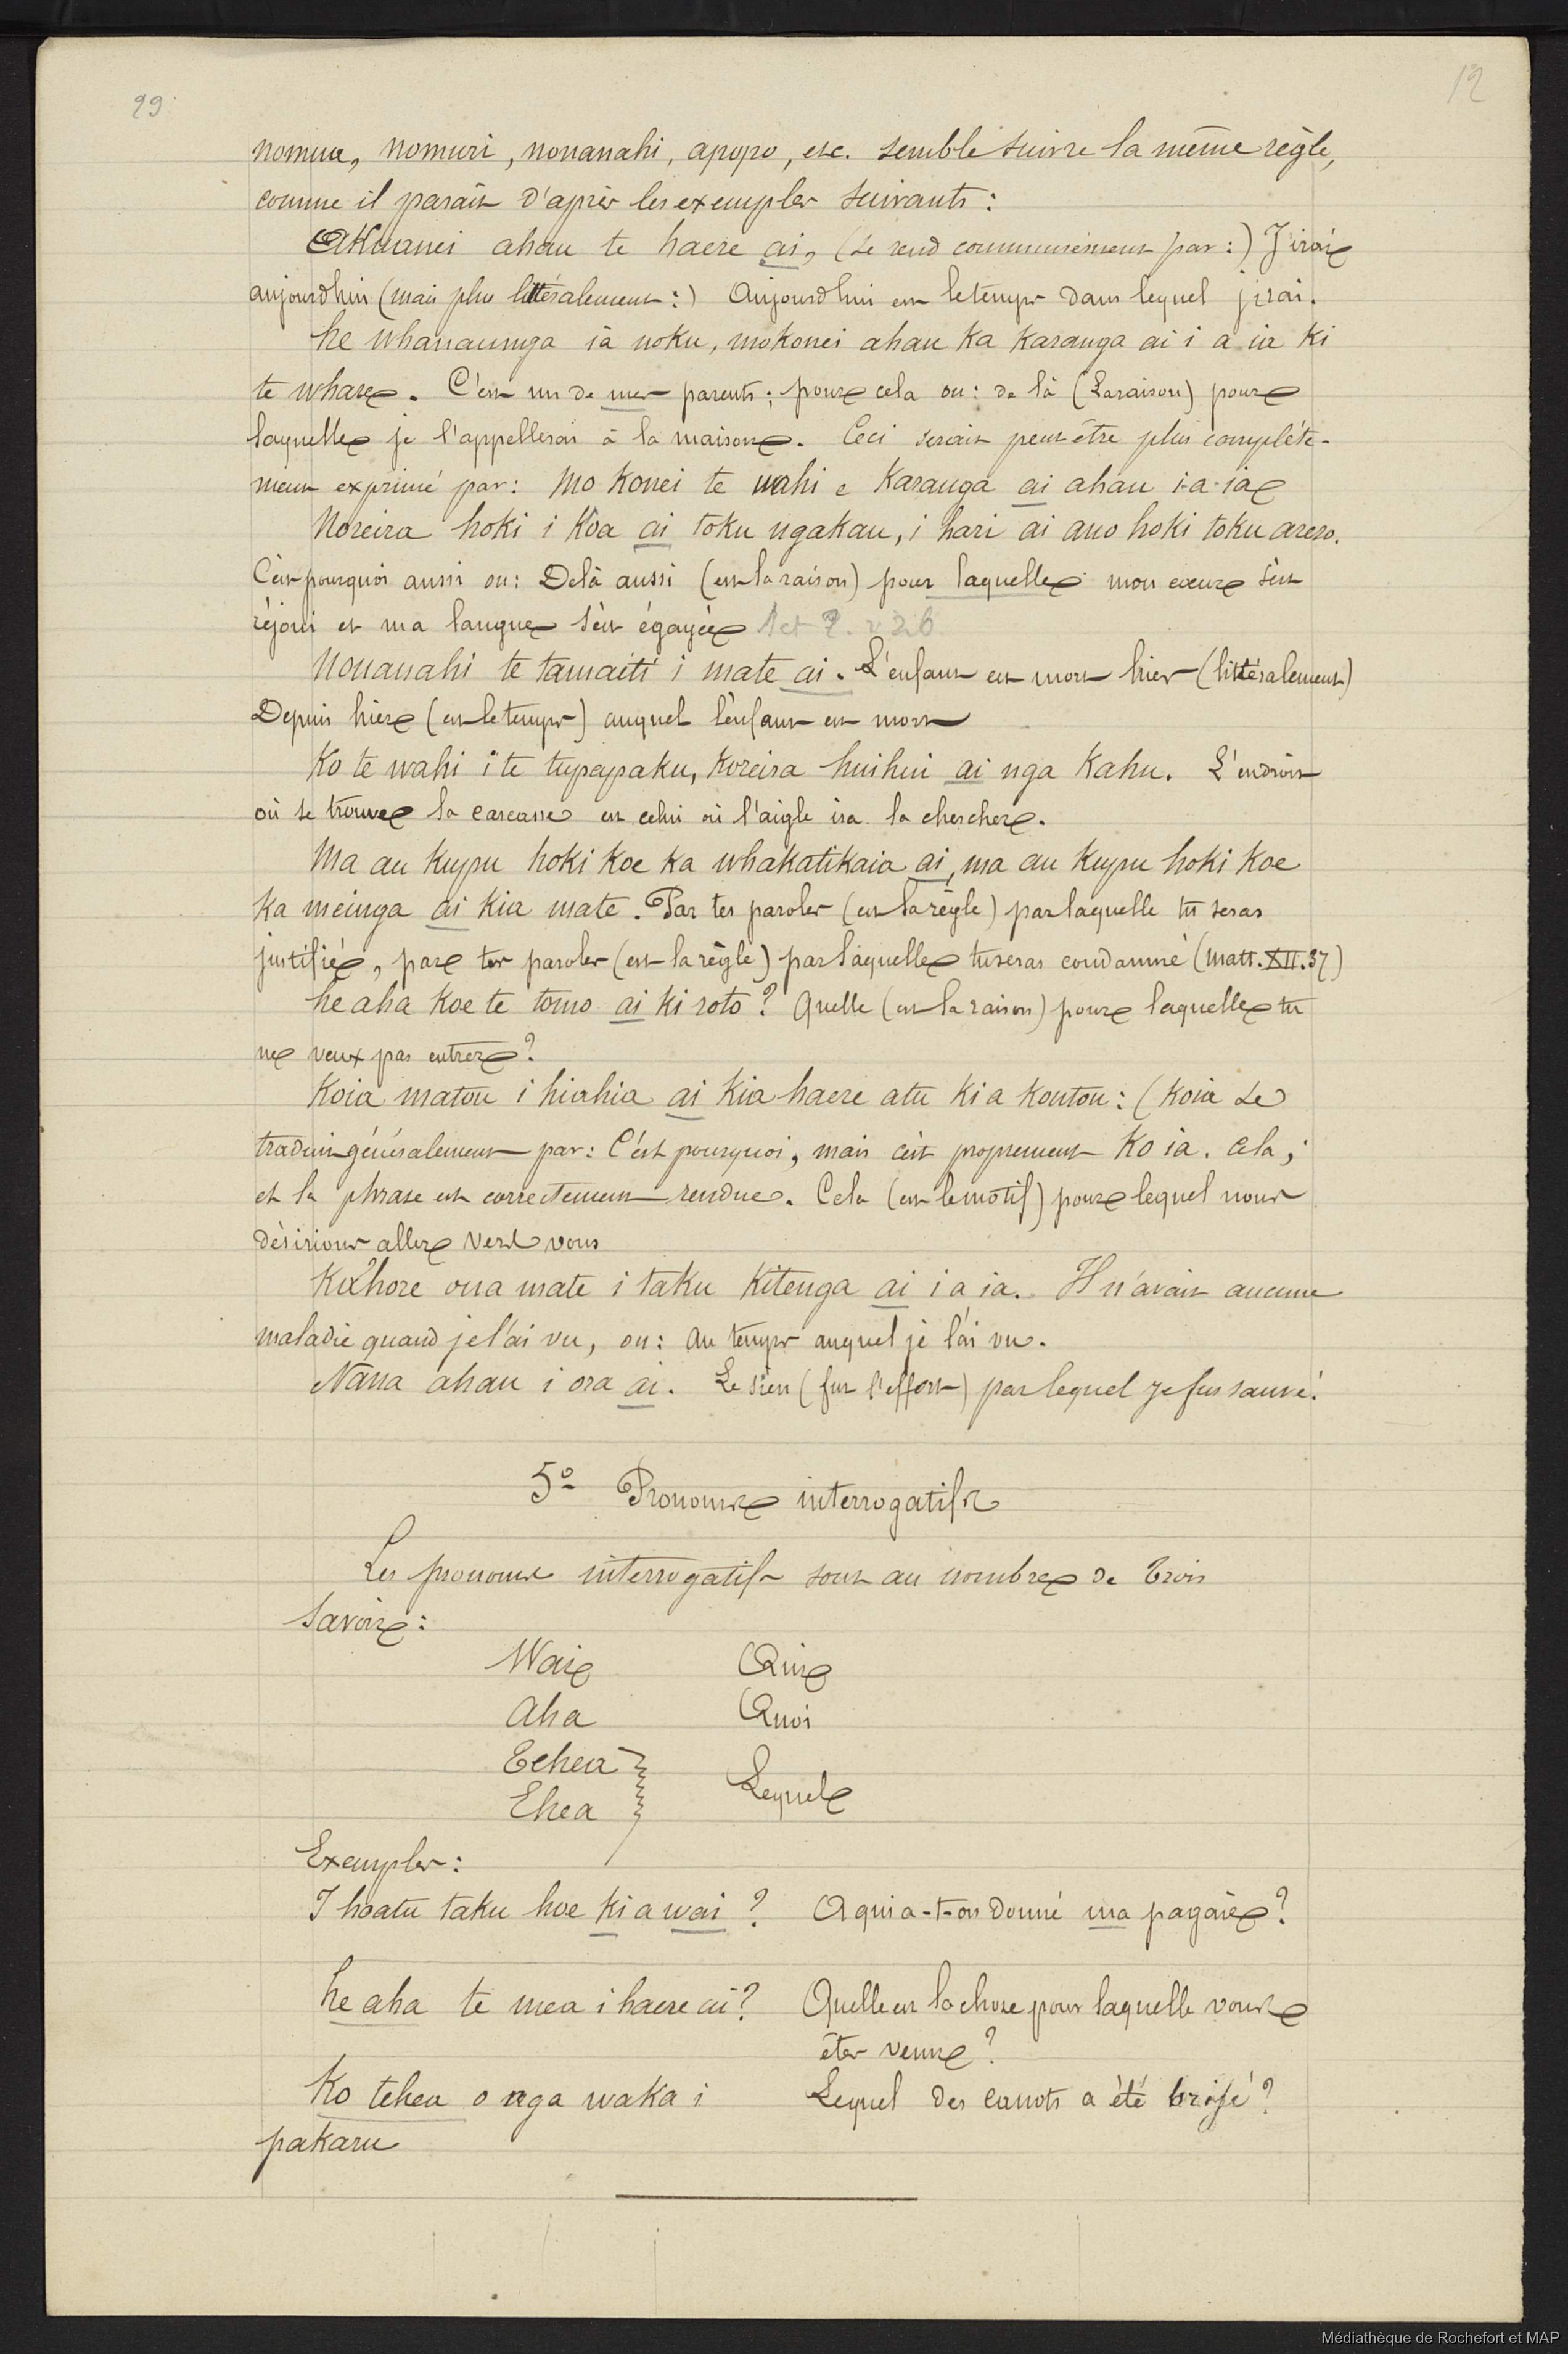 29
12
nomua, nomuri, nonanahi, apopo, etc. semble suivre la même règle,
comme il parait d'après les exemples suivants :
Akuanei ahau te haere ai, (se rend communément par :) J'irai
aujourdhui (mais plus littéralement :) Aujourdhui est le temps dans lequel j'irai.
he whanaunga ia noku, mokonei ahau ka karanga ai i a ia ki
te whare. C'est un de mes parents ; pour cela ou : de là (la raison) pour
laquelle je l'appellerai à la maison. Ceci serait peut être plus complète-
ment exprimé par : Mo konei te wahi e karanga ai ahau i a ia
Noreira hoki i koa ai toku ngakau, i hari ai ano hoki toku arero.
C'est pourquoi aussi ou : De là aussi (est la raison) pour laquelle mon cœur s'est
réjoui et ma langue s'est égayée Act 2. v 26
Nonanahi te tamaiti i mate ai. L'enfant est mort hier (littéralement)
Depuis hier (est le temps) auquel l'enfant est mort
Ko te wahi i te tupapaku, koreira huihui ai nga kahu. L'endroit
où se trouve la carcasse est celui où l'aigle ira la chercher.
Ma au kupu hoki koe ka whakatikaia ai, ma au kupu hoki koe
ka meinga ai kia mate. Par tes paroles (est la règle) par laquelle tu seras
justifié, par tes paroles (est la règle) par laquelle tu seras condamné (Matt. XII. 37)
he aha koe te tomo ai ki roto ? Quelle (est la raison) pour laquelle tu
ne veux pas entrer ?
Koia matou i hiahia ai kia haere atu ki a koutou : (koia se
traduit généralement par : C'est pourquoi, mais c'est proprement Ko ia. Cela ;
et la phrase est correctement rendue. Cela (est le motif) pour lequel nous
désirions aller vers vous
Kahore ona mate i taku kitenga ai i a ia. Il n'avait aucune
maladie quand je l'ai vu, ou : au temps auquel je l'ai vu.
Nana ahau i ora ai. Le sien (fut l'effort) par lequel je fus sauvé.
5° Pronoms interrogatifs
Les pronoms interrogatifs sont au nombre de trois
Savoir :
Wai Qui
Aha Quoi
Tehea
Ehea } Lequel
Exemples :
I hoatu taku hoe ki a wai ? A qui a-t-on donné ma pagaie ?
he aha te mea i haere ai ? Quelle est la chose pour laquelle vous
êtes venu ?
Ko tehea o nga waka i Lequel des canots a été brisé ?
pakaru
Médiathèque de Rochefort et MAP